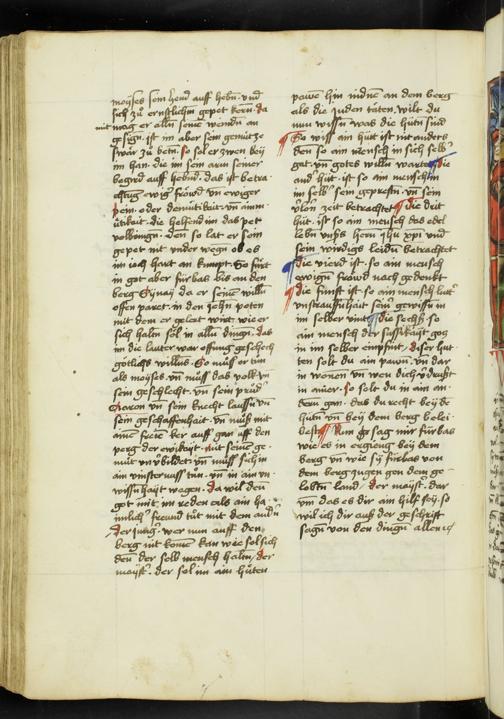 moyses sein hend auff hebn · vnd
sich zů ernstlichm gepet kern · da
mit mag er alln seine veindn an
gesign · ist im aber sein gemütze
swär zu betn · so sol er zwen bey
im han · die im sein arm seiner
begird auff hebnd · das ist betra
chtūg ewig fräwd vn ewiger
pein · oder demütikait · vn ainm
ütikait · die helfend im das pet
volbringn · den so lat er sein
gepet nit vnder wegn ob es
im ioch hart an kumpt · So fürt
in got aber fürbas bis an den
berg Synay da er seinē willn
offen paret · in den zehn poten
mit dem er gelert wirt wie er
sich haltn sol in alln dingn · das
im die lauter war offnung geschech
götlichs willns · So müß er tůn
als moyses · vn müß das volk vn
sein geschlecht · vn sein prüd
Aaron vn sein knecht laussn vn
sein geschaffenhait · vn můß mit
aine freie ker auff gan auff den
perg der ewikeyt · mit seinē ge
müt vn vbildet · vn müß sich in
ain vinsternuss tůn · vn in ain vn
wissnhayt wagen · da wil den
got mit im reden als ain ha
imlich freund tůt mit dem andn
der iung · wer nun auff den
berg nit komē kan wie sol sich
den der selb mensch haltn / der
mayst · der sol im ain hütten
pawē hin nidnē an dem berg
als die Juden täten · wilt du
nun wissn was die hütn sind
So wiss ain hüt ist nit anders
den so ain mensch in sich selb
gat · vn gotes willn wartet die
and hüt · ist so ain mensch in
im selb sein geprestn · vn sein
vlorn zeit betrachtet die drit
hüt · ist so ain mensch das edel
lebn vnsß hern ihu xpi vnd
sein wirdigs leidn betrachtet
die vierd ist · so ain mensch
ewign fräwd nach gedenkt
die fünft ist · so ain mensch lutt
vn straufnhait seinß gewissn in
im selber vint die sechß so
ain mensch der süssikayt gotz
in im selber enpfint · diser hüt
ten solt du ain pawn · vn dar
in wonen vn wen dich vdrüßt
in ainer · so solt du in ain an
dern gan · das du recht bey dē
hütn vn bey dem berg belei
best Nun sag mir fürbas
wie es in ergieng bey dem
berg · vn wie sy fürbas von
dem berg zugen gen dem ge
lobtn land / der mayst · dar
vm das es dir ain hilf sey · so
wil ich dir auß der geschrift
sagn von den dingn allen